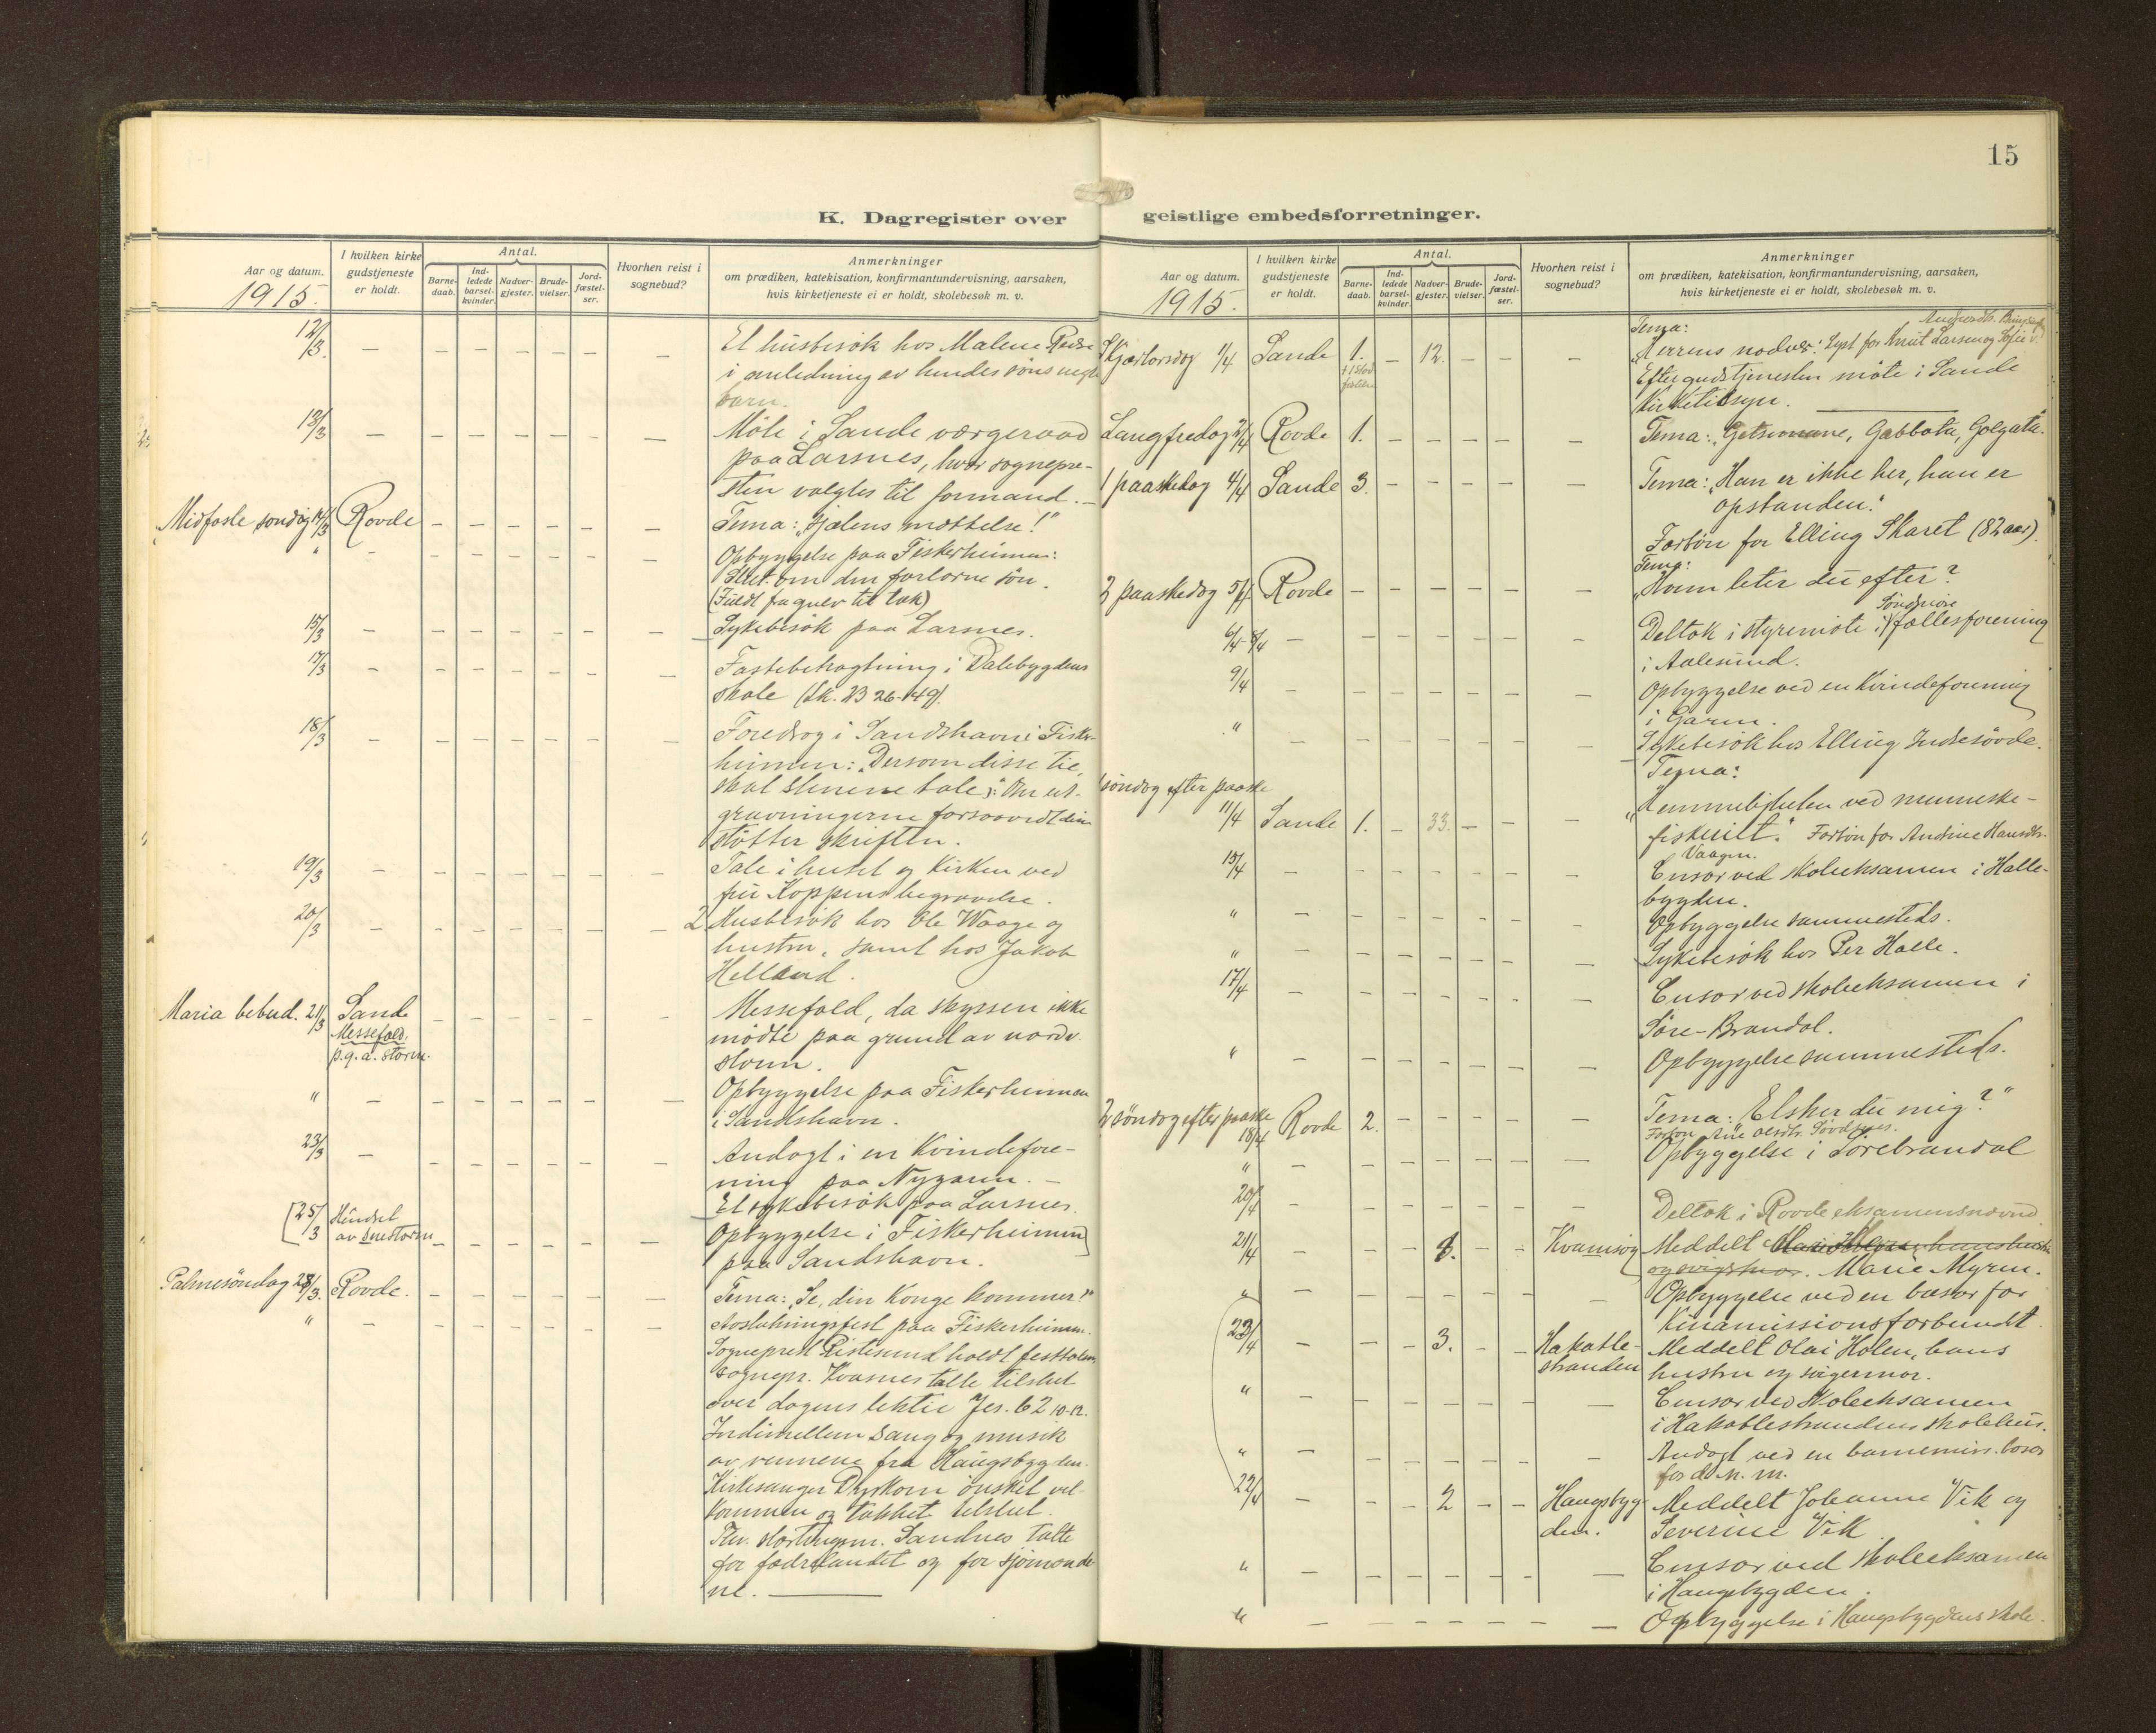 15
K. Dagregister over
Aar og datum.
1915.
I hvilken kirke gudstjeneste er holdt.
Antal.
Barne-daab.
Ind-ledede barsel-kvinder.
Nadver-gjester.
Brude-vielser.
Jord-fæstel-ser.
Hvorhen reist i sognebud?
Anmerkninger
om prædiken, katekisation, konfirmantundervisning, aarsaken,
hvis kirketjeneste ei er holdt, skolebesøk m. v.
12/3 — — — — — — — Et husbesøk hos Malene
i anledning av hendes søns
barn.
13/3 — — — — — — — Møte i Sande værgeraad
paa Larsnes, hvor sognepre-
sten valgtes til formand. —
Midfaste søndag 14/3 Rovde — — — — — — Tema: "Sjælens mættelse!"
" — — — — — — — Opbyggelse paa Fiskerheimen:
Slut. om den fortorne søn.
(Fuldt fra gulv til tak)
15/3 — — — — — — — Sykebesøk paa Larsnes.
17/3 — — — — — — — Fastebetragtning i Dalebygdens
skole (Lk. 23 26-49).
18/3 — — — — — — — Foredrag i Sandshavn i Fisker-
heimen: "Dersom disse tie,
skal stenene tale": Om ut-
gravningerne forsaavidt de
støtter skriften.
19/3 — — — — — — — Tale i huset og kirken ved
fru Koppens begravelse.
20/3 — — — — — — — 2 Husbesøk hos Ole Waage og
hustru, samt hos Jakob
Helland.
Maria bebud. 21/3 Sande — — — — — Messefald, da skyssen ikke
Messefald, p.g.a. storm. mødte paa grund av nordv.
storm.
" — — — — — — — Opbyggelse paa Fiskerheimen
i Sandshavn.
23/3 — — — — — — — Andagt i en Kvindefore-
ning paa Nygaren. —
Et sykebesøk paa Larsnes.
[25/3 Hindret av snestorm — — — — — — Opbyggelse i Fiskerheimen]
paa Sandshavn.
Palmesøndag 28/3. Rovde. — — — — — — Tema: "Se, din Konge kommer!"
" — — — — — — — Avslutningsfest paa Fiskerheimen.
Sogneprest Ristesund holdt festtalen,
sognepr. Kvasnes talte tilslut
over dagens lektie Jes. 62 10-12.
Indimellem sang og musik
av vennene fra Haugsbygden.
Kirkesanger Dyrkorn ønsket vel-
kommen og takket tilslut.
Stortingsm. Sandnes talte
for fædrelandet og for sjømænde-
ne. —
geistlige embedsforretninger.
Aar og datum.
1915.
I hvilken kirke gudstjeneste er holdt.
Antal.
Barne-daab.
Ind-ledede barsel-kvinder.
Nadver-gjester.
Brude-vielser.
Jord-fæstel-ser.
Hvorhen reist i sognebud?
Anmerkninger
om prædiken, katekisation, konfirmantundervisning, aarsaken,
hvis kirketjeneste ei er holdt, skolebesøk m. v.
Skjærtorsdag 1/4 Sande 1. — 12. — — — Tema:
"Herrens nadver." Lyst for Knut Larsen og Sofie
Efter gudstjenesten møte i Sande
kirketilsyn.
Langfredag 2/4 Rovde 1. — — — — — Tema: "Getsemane, Gabbata, Golgata."
1 paaskedag 4/4 Sande 3. — — — — — Tema: "Han er ikke her, han er
opstanden."
Forbøn for Elling Skaret (82 aar).
2 paaskedag 5/4 Rovde — — — — — — Tema:
"Hvem leter du efter?
6/4-8/4 — — — — — — — Deltok i styremøte i Søndmøre fællesforening
i Aalesund.
9/4 — — — — — — — Opbyggelse ved en kvindeforening
i Garen.
" — — — — — — — Sykebesøk hos Elling Indresøvde.
1 søndag efter paaske
11/4 Sande 1. — 33. — — — Tema:
"Hemmeligheten ved menneske-
fiskeriet." Forbøn for Andrine Hansdtr.
Vaagen.
15/4 — — — — — — — Censor ved skoleeksamen i Halle-
bygden.
" — — — — — — — Opbyggelse sammesteds.
" — — — — — — — Sykebesøk hos Per Halle.
17/4 — — — — — — — Censor ved skoleeksamen i
Søre-Brandal.
" — — — — — — — Opbyggelse sammesteds.
2 søndag efter paaske
18/4 Rovde 2. — — — — — Tema: "Elsker du mig?"
" — — — — — — — Opbyggelse i Sørebrandal
20/4 — — — — — — — Deltok i Rovde eksamensnævnd
21/4 — — — 8. — — Kvamsøy Meddelt Marie Myren.
" — — — — — — — Opbyggelse ved en basar for
Kinamissionsforbundet.
23/4 — — — 3. — — Hakallestranden Meddelt Olai Holen, hans
hustru og svigermor.
" — — — — — — — Censor ved skoleeksamen
i Hakallestrandens skolehus.
" — — — — — — — Andagt ved en barnemiss. basar
for d. n. m.
22/4 — — — 2 — — Haugsbygden. Meddelt Johanne Vik og
Severine Vik.
" — — — — — — — Censor ved skoleeksamen
i Haugsbygden.
" — — — — — — — Opbyggelse i Haugsbygdens skole.